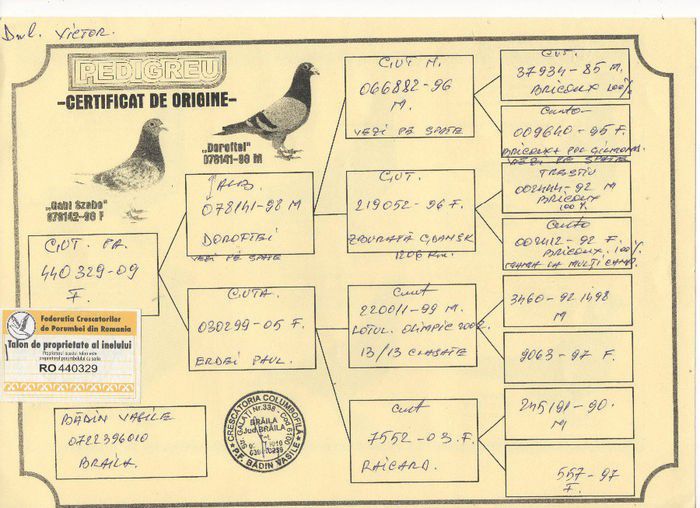 Dnl. VICTOR.
PEDIGREU
-CERTIFICAT DE ORIGINE-
„Doroftei"
078141-98 M
„Gabi Szabo"
078142-98 F
CIUT. PA.
440329-09
F.
Federatia Crescatorilor
de Porumbei din Romania
Talon de proprietate al inelului
Proprietarul acestui talon este
proprietarul porumbelului cu seria
RO 440329
BĂDIN VASILE
0722396010
BRĂILA.
078141-98 M
DOROFTEI
VEZI PE SPATE
CIUTA.
030299-05 F.
ERDEI PAUL.
CRESCĂTORIA COLUMBOFILĂ
Str. GALAȚI Nr. 338
BRĂILA
Jud. BRĂILA
P.F. BĂDIN VASILE
CIUT M.
066882-96
M.
VEZI PE SPATE
CIUT.
219052-96 F.
ZBURATĂ GDANSK
1206 Km.
Ciut
220011-99 M.
LOTUL OLIMPIC 2002.
13/13 CLASATE
Ciut
7552-03.F.
RAICARD.
CIUT.
37934-85 M.
BRICOUX 100%
009640-95 F.
VEZI PE SPATE
002444-92 M
BRICOUX
100%
002412-92 F.
BRICOUX. 100%
MAMA LA MULȚI CAMP.
3460-921498
M
9063-97 F.
245191-90.
M
557-97
F.